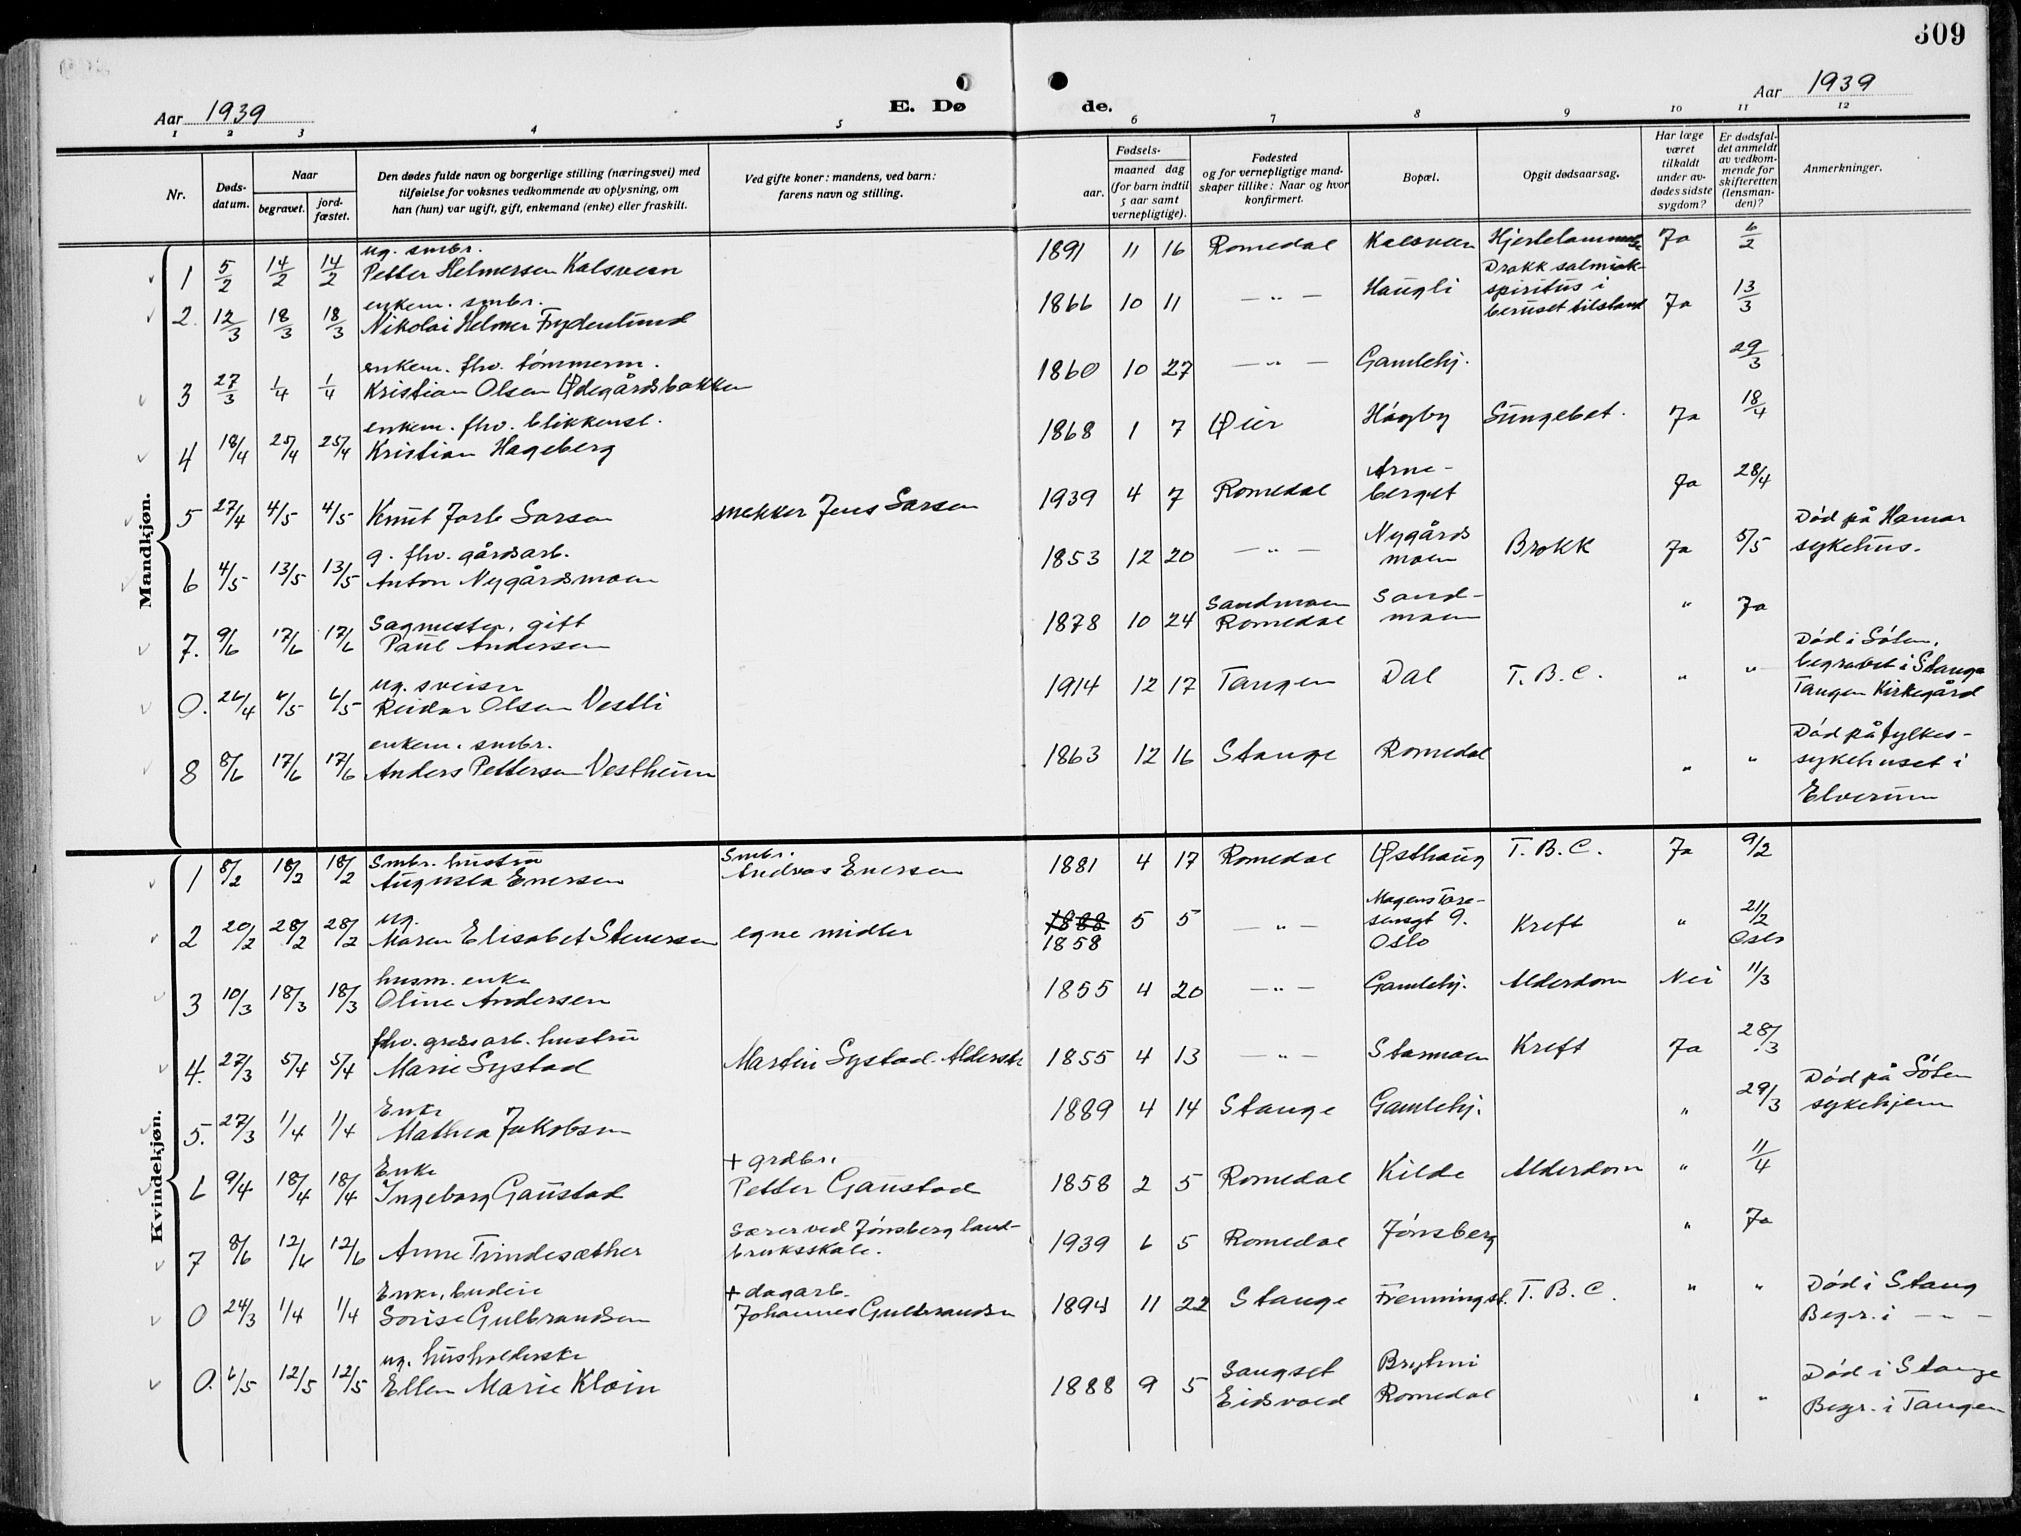 309
Aar 1939
E. Dø
de.
Aar 1939
1 2 3 4 5 6 7 8 9 10 11 12
Nr.
Døds-
datum.
Naar
begravet.
jord-
fæstet.
Den dødes fulde navn og borgerlige stilling (næringsvei) med
tilføielse for voksnes vedkommende av oplysning, om
han (hun) var ugift, gift, enkemand (enke) eller fraskilt.
Ved gifte koner: mandens, ved barn:
farens navn og stilling.
Fødsels-
aar.
maaned dag
(for barn indtil
5 aar samt
vernepligtige).
Fødested
og for vernepligtige mand-
skaper tillike: Naar og hvor
konfirmert.
Bopæl.
Opgit dødsaarsag.
Har læge
været
tilkaldt
under av-
dødes sidste
sygdom?
Er dødsfal-
det anmeldt
av vedkom-
mende for
skifteretten
(lensman-
den)?
Anmerkninger.
Mandkjøn.
ug. smbr.
1 5/2 14/2 14/2 Petter Helmersen Kalsveen 1891 11 16 Romedal Kalsveen Hjertelammelse Ja 6/2
enkem. smbr.
2. 12/3 18/3 18/3 Nikolai Helmer Frydenlund 1866 10 11 — „ — Haugli Drakk salmiak-
spiritus i
beruset tilstand Ja 13/3
enkem. fhv. tömmerm.
3 27/3 1/4 1/4 Kristian Olsen Ødegårdsbakken 1860 10 27 — „ — Gamlehj. 29/3
enkem. fhv. blikkensl.
4 18/4 25/4 25/4 Kristian Hageberg 1868 1 7 Øier Högby Lungebet. Ja 18/4
5 27/4 4/5 4/5 Knut Jarle Larsen snekker Jens Larsen 1939 4 7 Romedal Arne-
berget Ja 28/4
g. fhv. gårdsarb.
6 4/5 13/5 13/5 Anton Nygårdsmoen 1853 12 20 — „ — Nygårds
moen Brokk Ja 5/5 Död på Hamar
sykehus.
Sagmester, gift
7. 9/6 17/6 17/6 Paul Andersen 1878 10 24 Sandmoen
Romedal Sand-
moen „ Ja
ug. sveiser
0. 26/4 6/5 6/5 Reidar Olsen Vestli 1914 12 17 Tangen Dal T. B. C. „ „ Död i Löten,
begravet i Stange
Tangen Kirkegård
enkem. smbr.
8 8/6 17/6 17/6 Anders Pettersen Vestheim 1863 12 16 Stange Romedal „ „ Död på fylkes-
sykehuset i
Elverum
Kvindekjøn.
Smbr. hustru
1 8/2 18/2 18/2 Augusta Enersen Smbr.
Andreas Enersen 1881 4 17 Romedal Østhaug T. B. C. Ja 9/2
ug.
2 20/2 28/2 28/2 Maren Elisabet Stenersen egne midler 1888
1858 5 5 — „ — Magens Tore-
sensgt 9.
Oslo Kreft „ 21/2
Oslo
husm. enke
3 10/3 18/3 18/3 Oline Andersen 1855 4 20 — „ — Gamlehj. Alderdom Nei 11/3
fhv. grdsarb. hustru
4. 27/3 5/4 5/4 Marie Systad Martin Systad. Alderstr. 1855 4 13 — „ — Starmoen Kreft Ja 28/3
Enke
5. 27/3 1/4 1/4 Mathea Jakobsen 1889 4 14 Stange Gamlehj. „ 29/3 Död på Löten
sykehjem
Enke
6 9/4 18/4 18/4 Ingeborg Gaustad + grdbr.
Petter Gaustad 1858 2 5 Romedal Kilde Alderdom „ 11/4
7 8/6 12/6 12/6 Anne Trindesæther Lærer ved Jönsberg land-
bruksskole. 1939 6 5 Romedal Jönsberg „ Ja
Enke, budeie
0 24/3 1/4 1/4 Lovise Gulbrandsen + dagarb.
Johannes Gulbrandsen 1894 11 22 Stange Frenningst. T. B. C. „ „ Död i Stang
Begr. i — „ —
ug. husholderske
0. 6/5 12/5 12/5 Ellen Marie Kloin 1888 9 5 Langset
Eidsvold Brytmi
Romedal „ „ Död i Stange
Begr. i Tangen